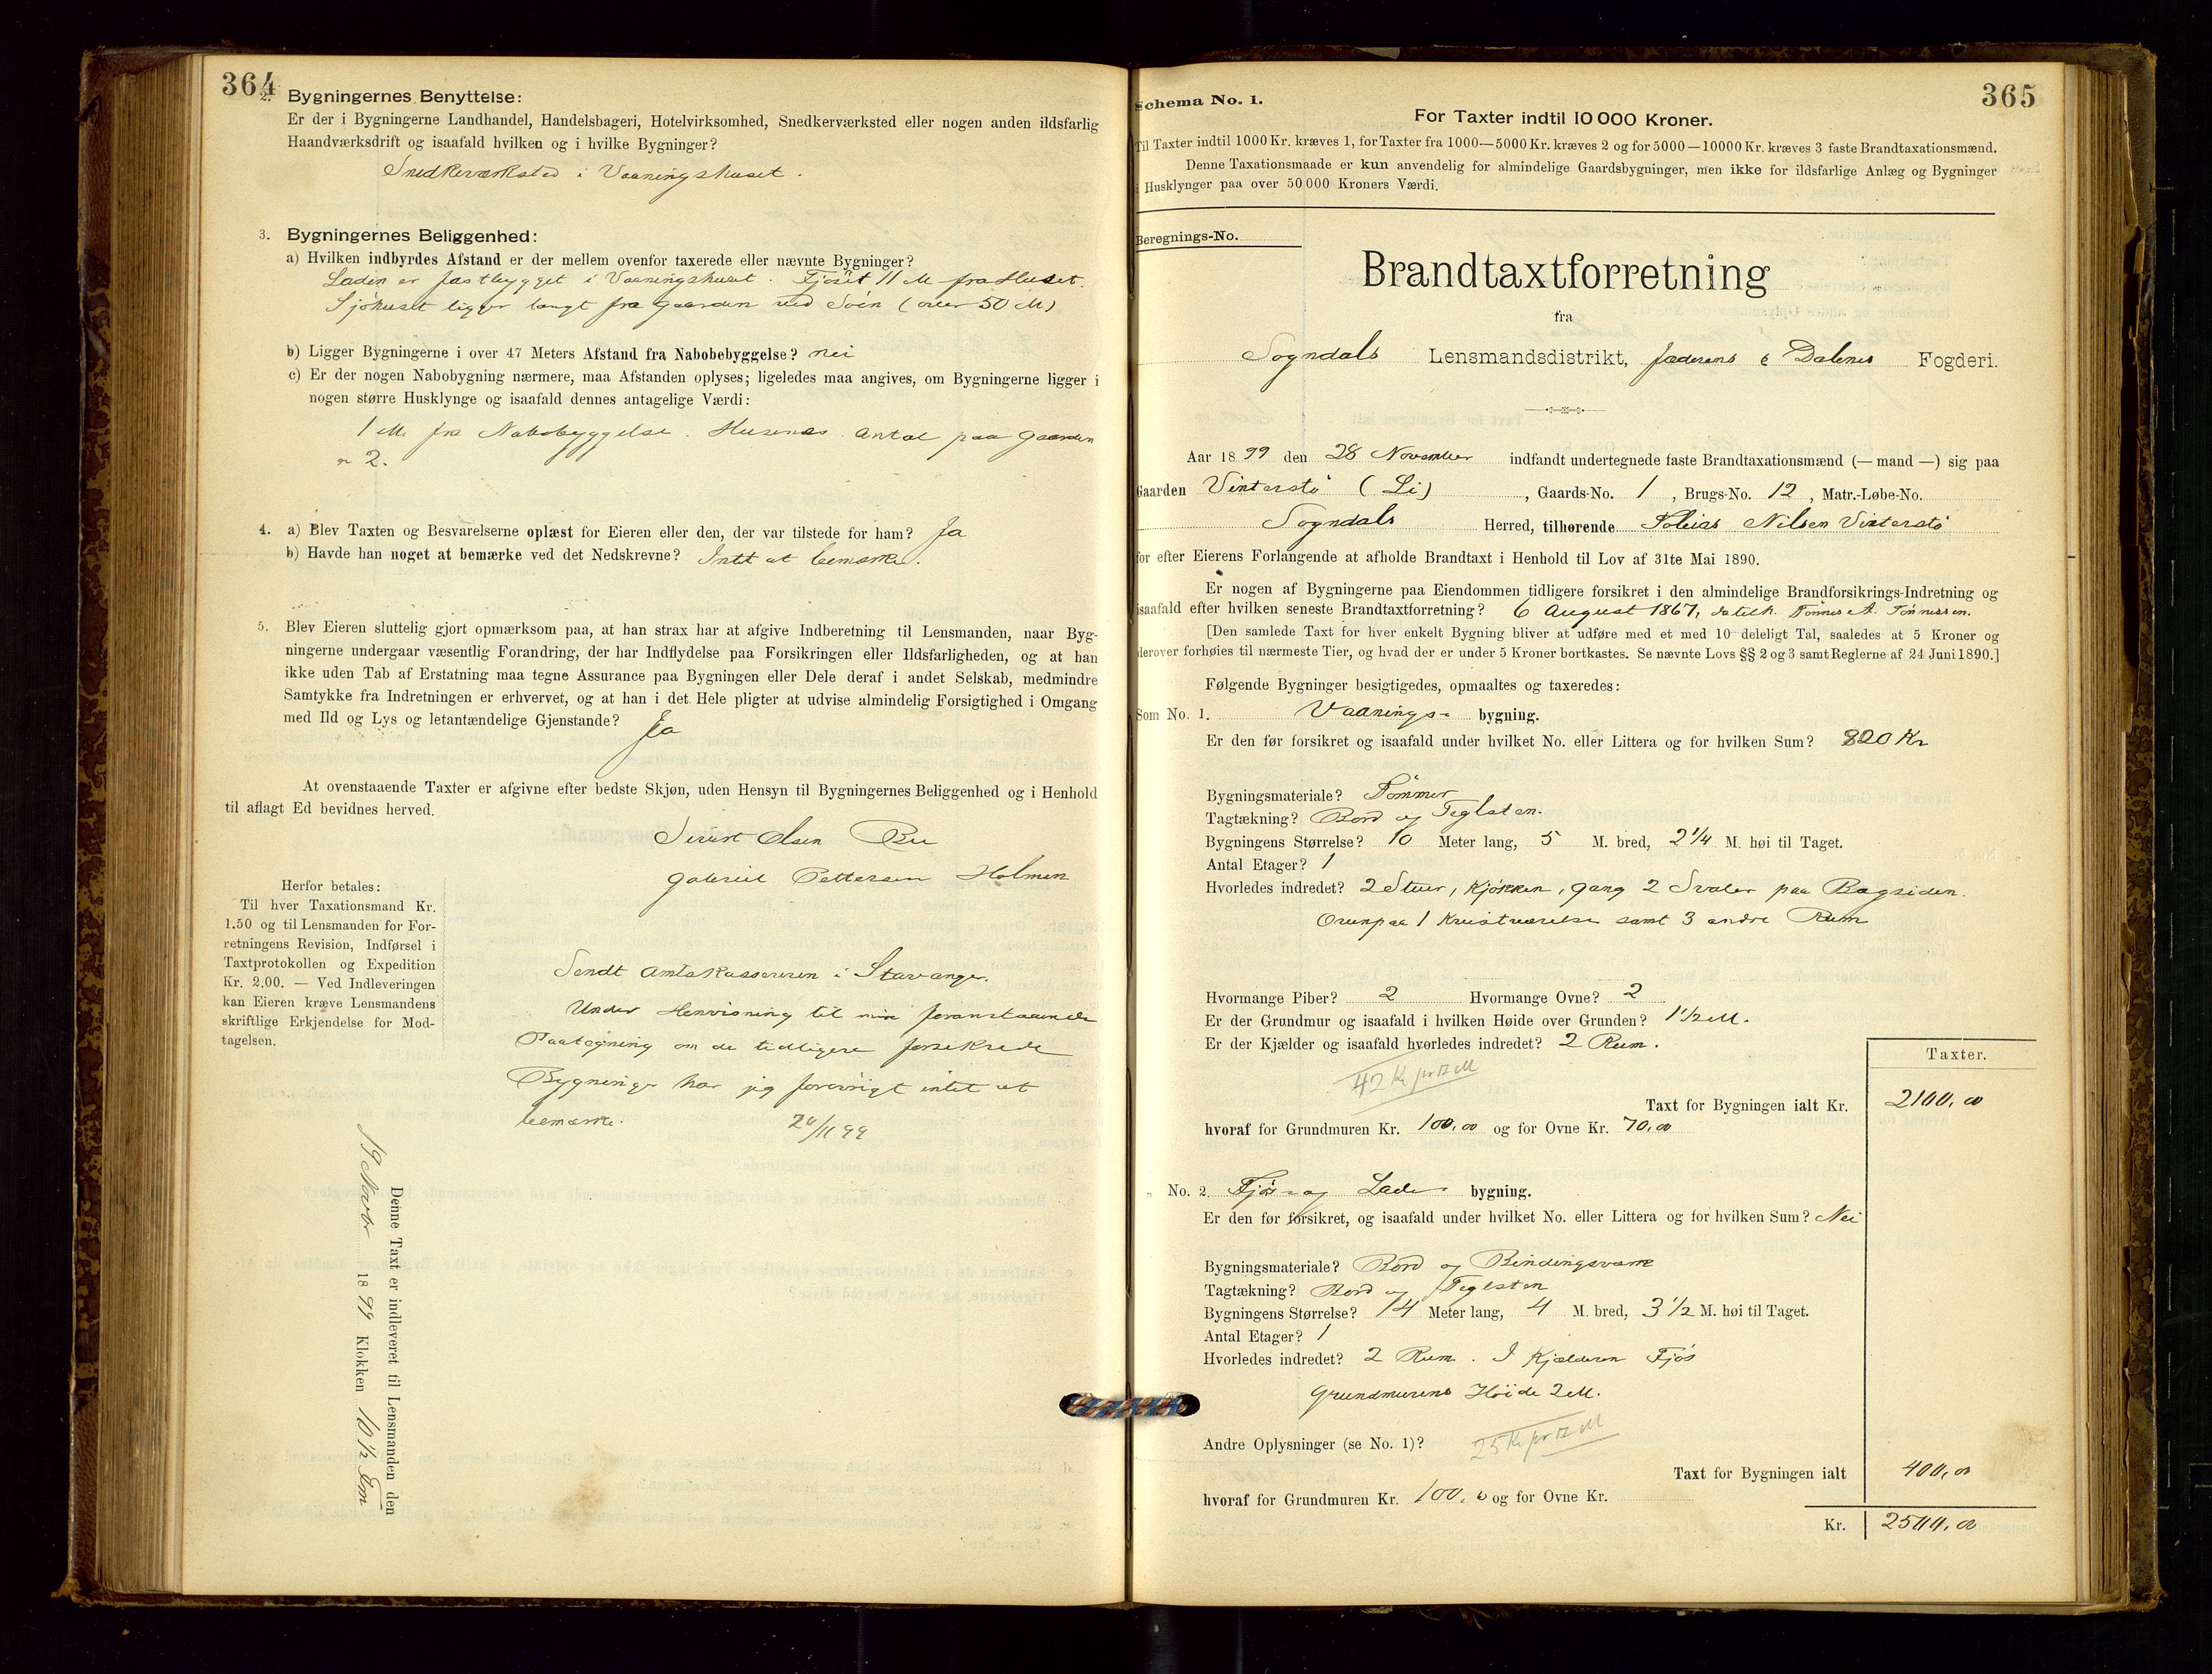 364
2. Bygningernes Benyttelse:
Er der i Bygningerne Landhandel, Handelsbageri, Hotelvirksomhed, Snedkerværksted eller nogen anden ildsfarlig
Haandværksdrift og isaafald hvilken og i hvilke Bygninger?
Snedkerværksted i Vaaningshuset.
3. Bygningernes Beliggenhed:
a) Hvilken indbyrdes Afstand er der mellem ovenfor taxerede eller nævnte Bygninger?
Laden er fastbygget i Vaaningshuset. Fjøset 11 M fra Huset.
Sjøhuset ligger langt fra Gaarden ved Søen (over 50 M)
b) Ligger Bygningerne i over 47 Meters Afstand fra Nabobebyggelse? nei
c) Er der nogen Nabobygning nærmere, maa Afstanden oplyses; ligeledes maa angives, om Bygningerne ligger i
nogen større Husklynge og isaafald dennes antagelige Værdi:
1 M. fra Nabobyggelse. Husenes Antal paa Gaarden
er 2.
4. a) Blev Taxten og Besvarelserne oplæst for Eieren eller den, der var tilstede for ham? Ja
b) Havde han noget at bemærke ved det Nedskrevne? Intet at bemærke.
5. Blev Eieren sluttelig gjort opmærksom paa, at han strax har at afgive Indberetning til Lensmanden, naar Byg-
ningerne undergaar væsentlig Forandring, der har Indflydelse paa Forsikringen eller Ildsfarligheden, og at han
ikke uden Tab af Erstatning maa tegne Assurance paa Bygningen eller Dele deraf i andet Selskab, medmindre
Samtykke fra Indretningen er erhvervet, og at han i det Hele pligter at udvise almindelig Forsigtighed i Omgang
med Ild og Lys og letantændelige Gjenstande? Ja
At ovenstaaende Taxter er afgivne efter bedste Skjøn, uden Hensyn til Bygningernes Beliggenhed og i Henhold
til aflagt Ed bevidnes herved.
Olsen
Gabriel Pettersen Holmen
Herfor betales:
Til hver Taxationsmand Kr.
1.50 og til Lensmanden for For-
retningens Revision, Indførsel i
Taxtprotokollen og Expedition
Kr. 2.00. — Ved Indleveringen
kan Eieren kræve Lensmandens
skriftlige Erkjendelse for Mod-
tagelsen.
Sendt Amtskassereren i Stavanger.
Under Henvisning til min foranstaaende
Paategning om de tidligere forsikrede
Bygninger har jeg forøvrigt intet at
bemærke. /11 99
Denne Taxt er indleveret til Lensmanden den
1899 Klokken 10 1/2 Em
365
Schema No. 1.
For Taxter indtil 10 000 Kroner.
Til Taxter indtil 1000 Kr. kræves 1, for Taxter fra 1000—5000 Kr. kræves 2 og for 5000—10000 Kr. kræves 3 faste Brandtaxationsmænd.
Denne Taxationsmaade er kun anvendelig for almindelige Gaardsbygninger, men ikke for ildsfarlige Anlæg og Bygninger
i Husklynger paa over 50 000 Kroners Værdi.
Beregnings-No.
Brandtaxtforretning
fra
Sogndals Lensmandsdistrikt, Jæderens & Dalenes Fogderi.
Aar 1899 den 28 November indfandt undertegnede faste Brandtaxationsmænd (— mand —) sig paa
Gaarden Vinterstø (Li), Gaards-No. 1, Brugs-No. 12, Matr.-Løbe-No.
Sogndals Herred, tilhørende Tobias Nilsen Vinterstø
for efter Eierens Forlangende at afholde Brandtaxt i Henhold til Lov af 31te Mai 1890.
Er nogen af Bygningerne paa Eiendommen tidligere forsikret i den almindelige Brandforsikrings-Indretning og
isaafald efter hvilken seneste Brandtaxtforretning? 6 August 1867, da tilh. Tønnes A. Tønnessen.
[Den samlede Taxt for hver enkelt Bygning bliver at udføre med et med 10 deleligt Tal, saaledes at 5 Kroner og
derover forhøies til nærmeste Tier, og hvad der er under 5 Kroner bortkastes. Se nævnte Lovs §§ 2 og 3 samt Reglerne af 24 Juni 1890.]
Følgende Bygninger besigtigedes, opmaaltes og taxeredes:
Som No. 1. Vaanings- bygning.
Er den før forsikret og isaafald under hvilket No. eller Littera og for hvilken Sum? 820 Kr
Bygningsmateriale? Tømmer
Tagtækning? Bord og Teglsten.
Bygningens Størrelse? 10 Meter lang, 5 M. bred, 2 1/4 M. høi til Taget.
Antal Etager? 1
Hvorledes indredet? 2 Stuer, Kjøkken, gang 2 Svaler paa Bagsiden.
Ovenpaa 1 Kvistværelse samt 3 andre Rum
Hvormange Piber? 2 Hvormange Ovne? 2
Er der Grundmur og isaafald i hvilken Høide over Grunden? 1 1/2 M.
Er der Kjælder og isaafald hvorledes indredet? 2 Rum.
42 Kr pr □ M
Taxter.
Taxt for Bygningen ialt Kr. 2100,00
hvoraf for Grundmuren Kr. 100,00 og for Ovne Kr. 70,00
" No. 2. Fjøs- og Lade bygning.
Er den før forsikret, og isaafald under hvilket No. eller Littera og for hvilken Sum? Nei
Bygningsmateriale? Bord og Bindingsværk
Tagtækning? Bord og Teglsten
Bygningens Størrelse? 14 Meter lang, 4 M. bred, 3 1/2 M. høi til Taget.
Antal Etager? 1
Hvorledes indredet? 2 Rum. I Kjælderen Fjøs
Grundmurens Høide 2 M.
Andre Oplysninger (se No. 1)? 25 Kr pr □ M
Taxt for Bygningen ialt 400,00
hvoraf for Grundmuren Kr. 100,00 og for Ovne Kr.
Kr. 2500,00